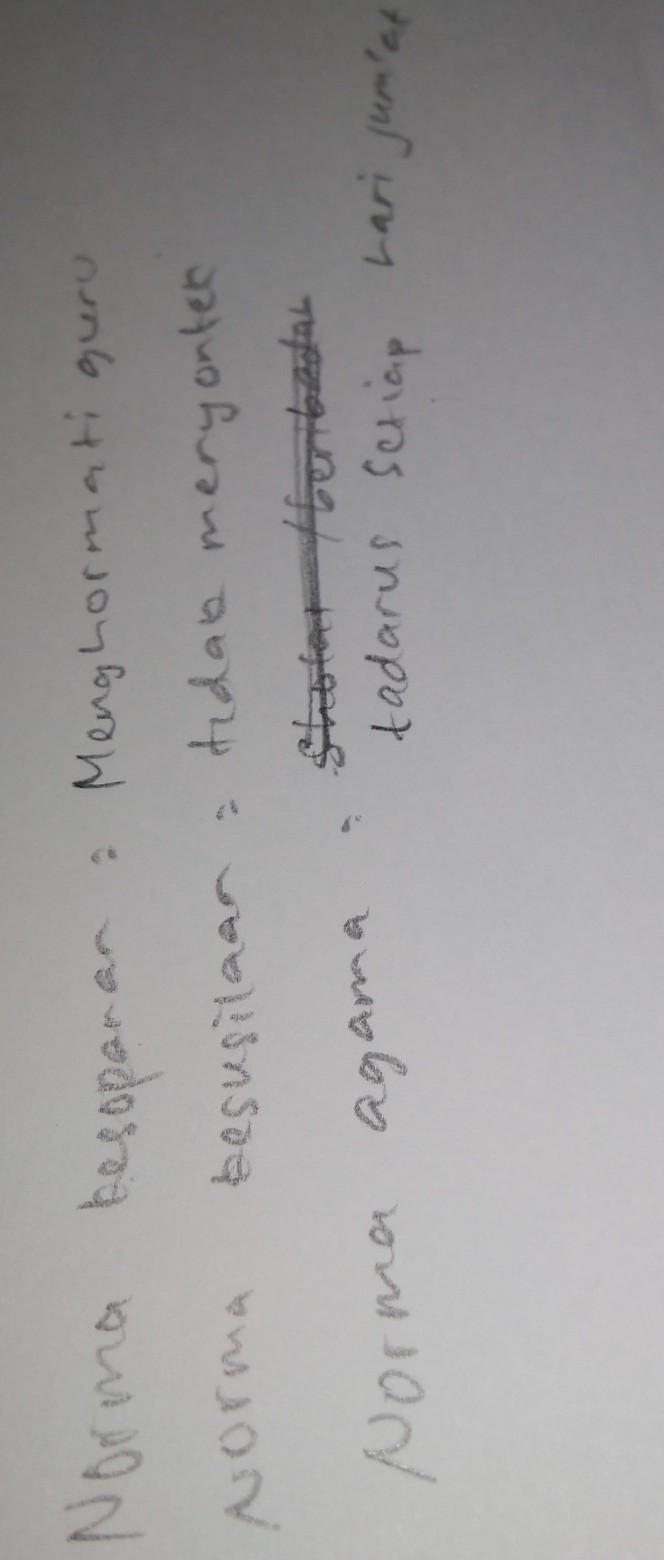 Norma kesopanan = Menghormati guru
Norma kesusilaan = tidak menyontek
Norma agama =
tadarus setiap hari jum'at